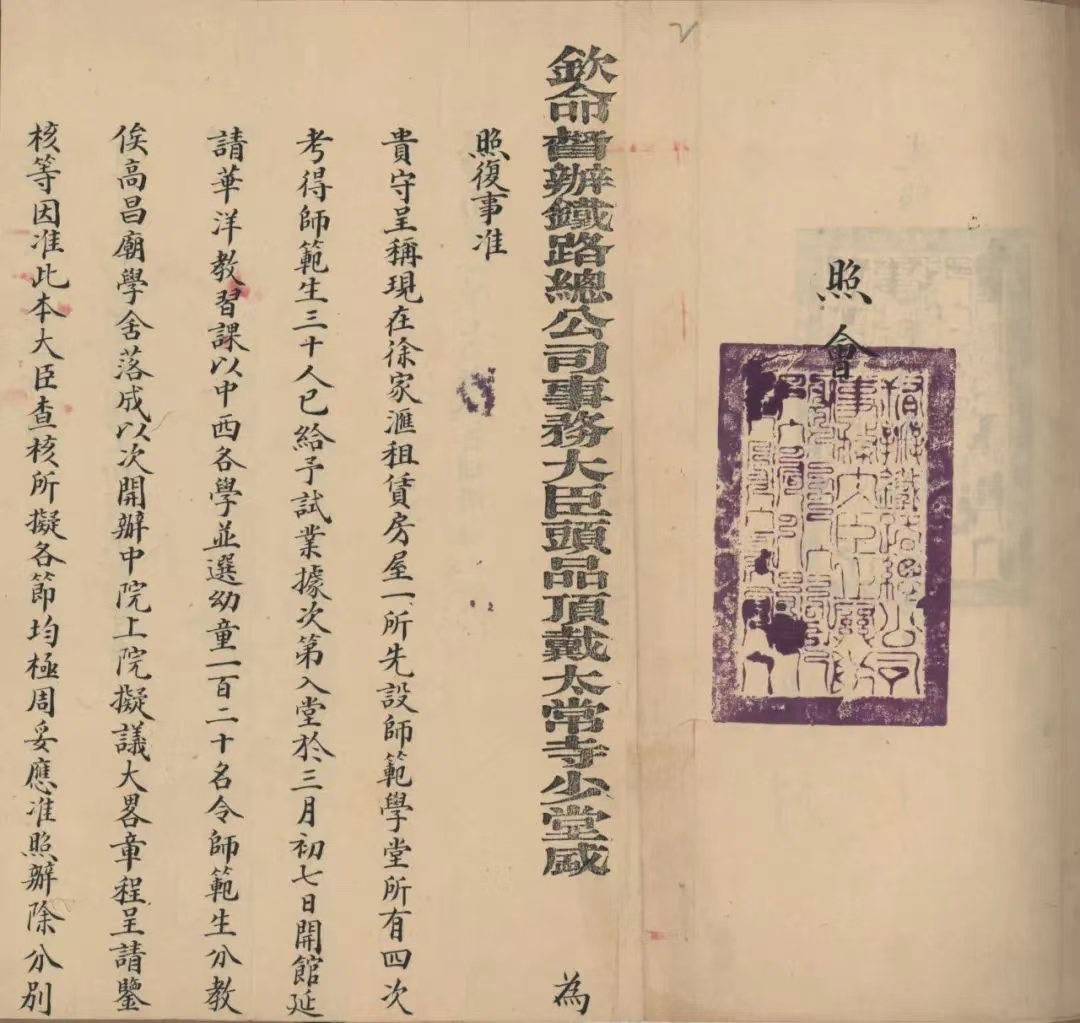 照會
欽命督辦鐵路總公司事務大臣頭品頂戴太常寺少堂盛 為
照復事准
貴守呈稱現在徐家滙租賃房屋一所先設師範學堂所有四次
考得師範生三十人已給予試業據次第入堂於三月初七日開館延
請華洋教習課以中西各學並選幼童一百二十名令師範生分教
俟高昌廟學舍落成以次開辦中院上院擬議大畧章程呈請鑒
核等因准此本大臣查核所擬各節均極周妥應准照辦除分別